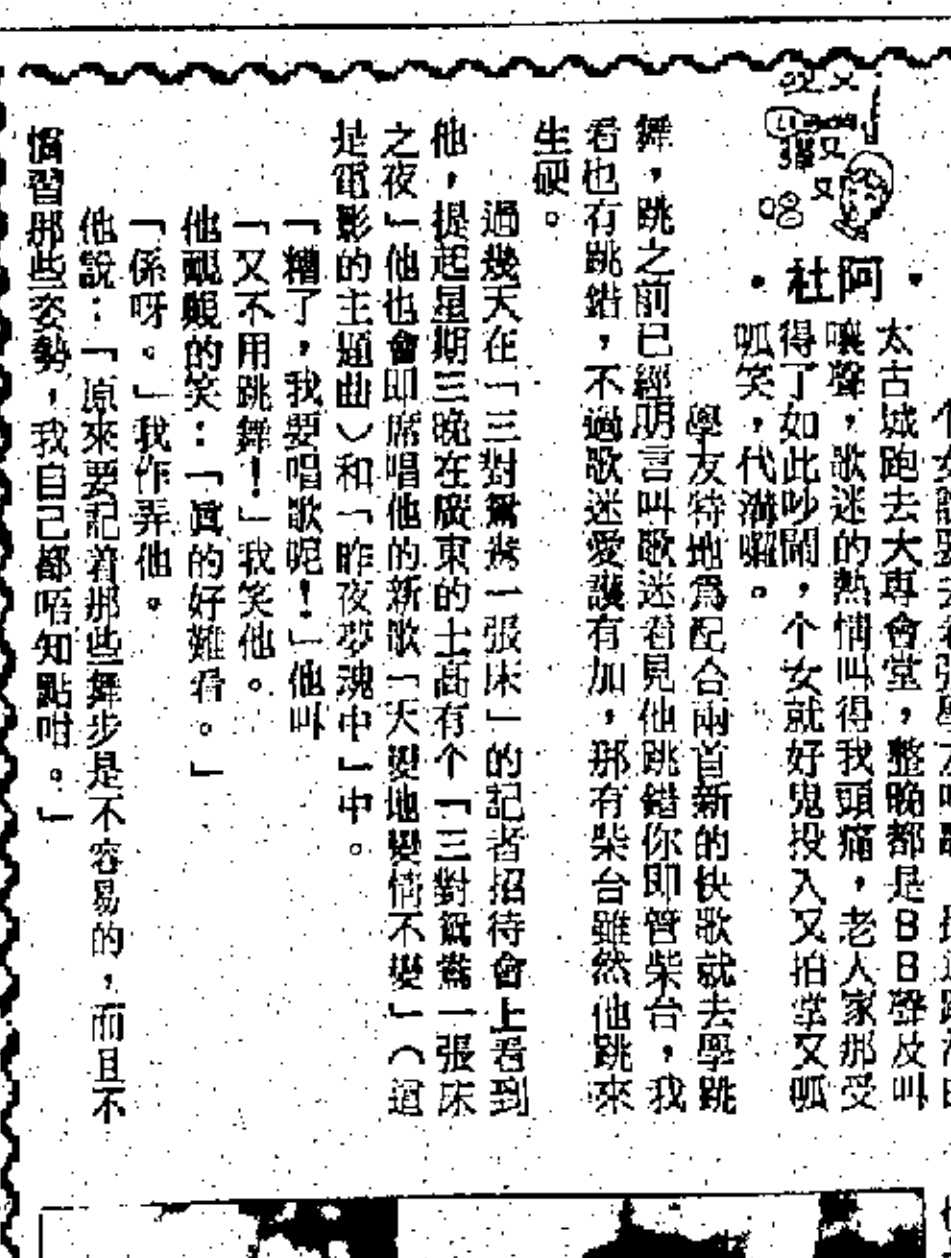 ・阿杜・
太古城跑去大專會堂，整晚都是BB聲及叫
嚷聲，歌迷的熱情叫得我頭痛，老人家那受
得了如此吵鬧，个女就好鬼投入又拍掌又呱
呱笑，代溝囉。
學友特地爲配合兩首新的快歌就去學跳
舞，跳之前已經明言叫歌迷看見他跳錯你即管柴台，我
看也有跳錯，不過歌迷愛護有加，那有柴台雖然他跳來
生硬。
過幾天在「三對鴛鴦一張床」的記者招待會上看到
他，提起星期三晚在廣東的士高有个「三對鴛鴦一張床
之夜」他也會即席唱他的新歌「天變地變情不變」（這
是電影的主題曲）和「昨夜夢魂中」中。
「糟了，我要唱歌呢！」他叫
「又不用跳舞！」我笑他。
他靦覥的笑：「眞的好難看。」
「係呀。」我作弄他。
他說：「原來要記着那些舞步是不容易的，而且不
慣習那些姿勢，我自己都唔知點咁。」